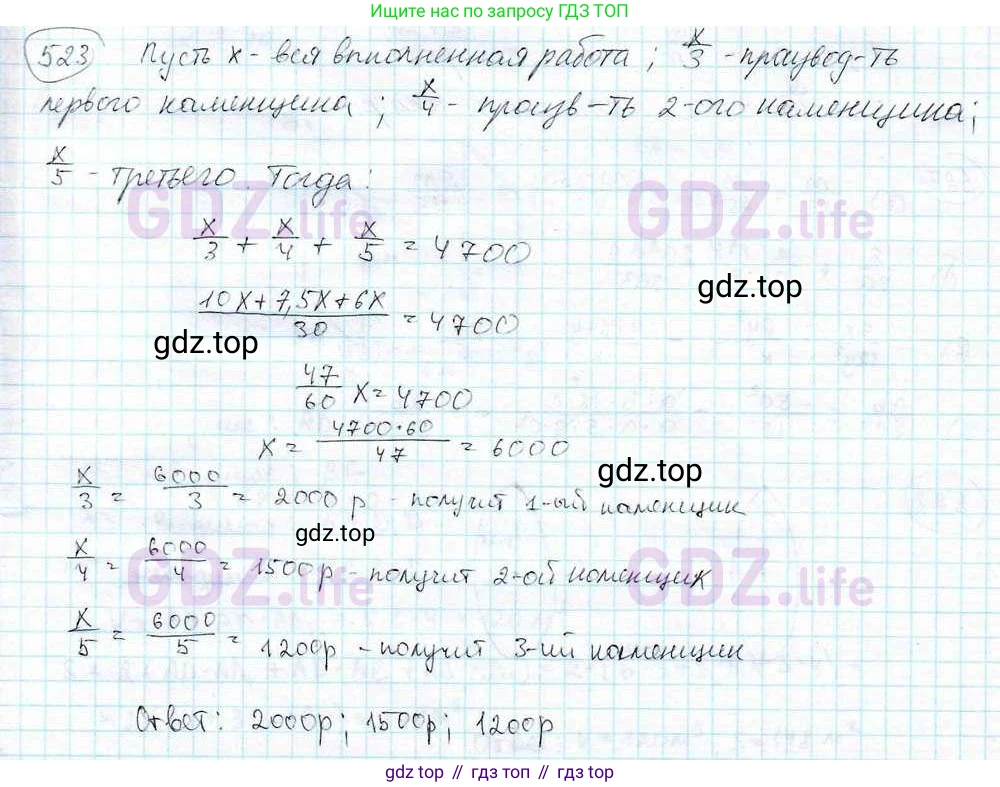 Ищите нас по запросу ГДЗ ТОП
523 Пусть x - вся вполненная работа; x/3 - працвод-ть
первого каменщика; x/4 - працв-ть 2-ого каменщика;
x/5 - третьего. Тогда:
GDZ.life GDZ.life
x/3 + x/4 + x/5 = 4700
gdz.top
(10x + 7,5x + 6x)/30 = 4700
gdz.top
47/60 x = 4700
x = (4700·60)/47 = 6000
gdz.top
x/3 = 6000/3 = 2000 р - получит 1-ый каменщик
gdz.top
GDZ.life GDZ.life
x/4 = 6000/4 = 1500р - получит 2-ой каменщик
x/5 = 6000/5 = 1200р - получит 3-ий каменщик
Ответ: 2000р; 1500р; 1200р
gdz top // гдз топ // гдз top